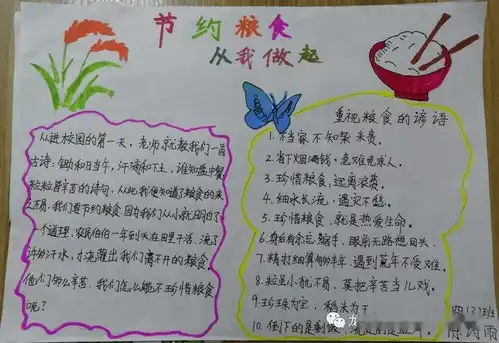 节约粮食
从我做起
从进校园的第一天，老师就教我们一首
古诗：锄和日当午，汗滴和下土，谁知盘中餐
粒粒是辛苦的诗句，从此我便知道了粮食的来
之不易，我们要节约粮食，因为我们从小就明白了
一个道理，农民伯伯一年到头在田里干活，流了
许多汗水，才
我们离不开的粮食
他们多么辛苦，我们怎么能不珍惜粮食
呢？
重视粮食的谚语
1. 不当家不知柴米贵。
2. 省下烟酒钱，急难免求人。
3. 珍惜粮食，远离浪费。
4. 细水长流，遇灾不愁。
5. 珍惜粮食，就是热爱生命。
6. 身后有余忘缩手，眼前无路想回头。
7. 精打细算够半年，遇到荒年不受难。
8. 粒虽小犹不易，莫把辛苦当儿戏。
9. 珍珠为宝，稻米为王
10. 倒下的是剩饭
四(2)班
雨